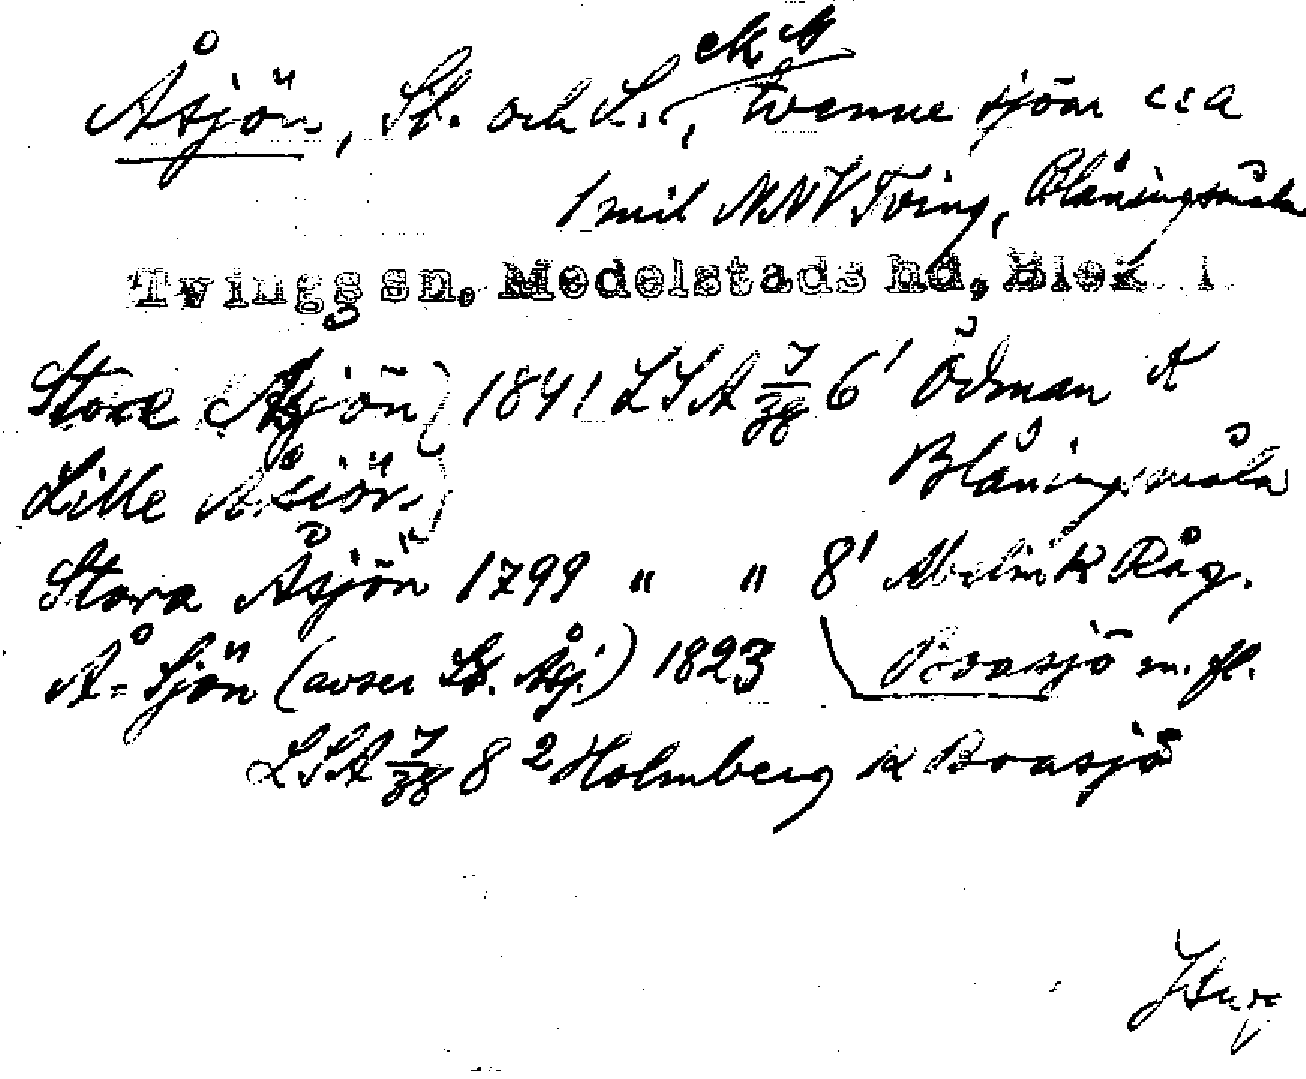 ek bl
Åsjön, St. och L., tvenne sjöar cca
1 mil NNV Tving, Blåningsmåla
Tvings sn. Medelstads hd, Blek. l
Store Åsjön } 1841 LSA 7/38 6¹ Ödman k
Lille Åsiön } Blåningsmåla
Stora Åsjön 1799 " " 8¹ Abelin k Råg.
Å=Sjön (avser St. Åsj.) 1823 Boasjö m.fl.
LSA 7/38 8² Holmberg k Boasjö